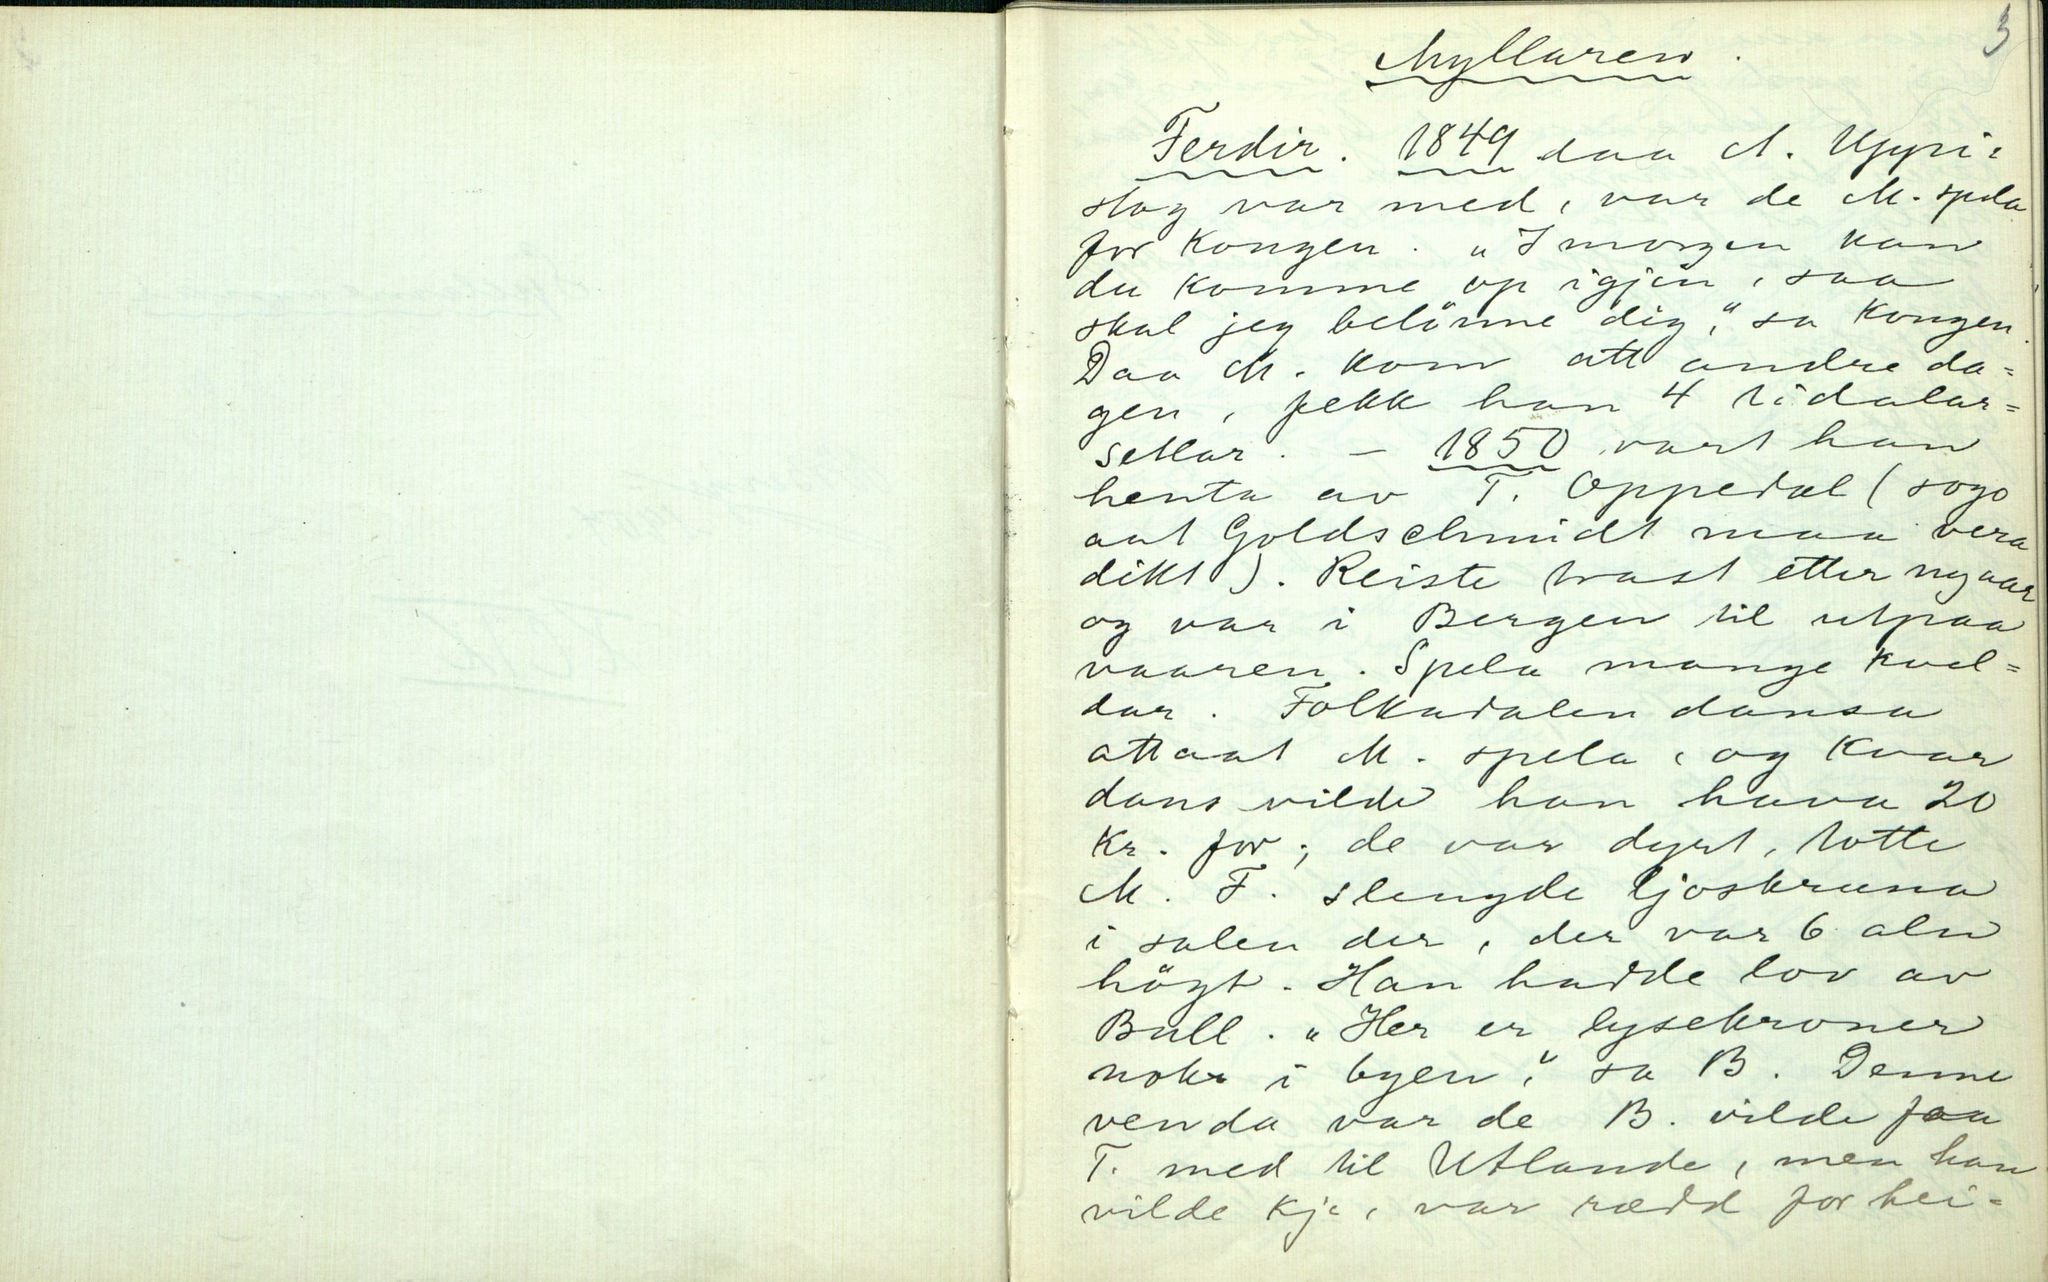 3
Myllaren.
Ferdir. 1849 daa A. Uppi=
stog var med, var de M. spela
for Kongen. „I morgen kan
du komme op igjen, saa
skal jeg belönne dig," sa Kongen.
Daa M. kom att andre da=
gen, fekk han 4 tidalar=
setlar. – 1850 vart han
henta av T. Oppedal (sogo
aat Goldschmidt maa vera
dikt). Reiste trast etter nyaar
og var i Bergen til utpaa
vaaren. Spela mange kvel=
dar. Folkadalen dansa
attaat M. spela, og kvar
dans vilde han hava 20
kr. for; de var dyrt, totte
M. F. slengde ljoskruna
i salen der, der var 6 aln
högt. Han hadde lov av
Bull. „Her er lysekroner
nok i byen," sa B. Denne
venda var de B. vilde faa
T. med til Utlande, men han
vilde kje, var rædd for hei=